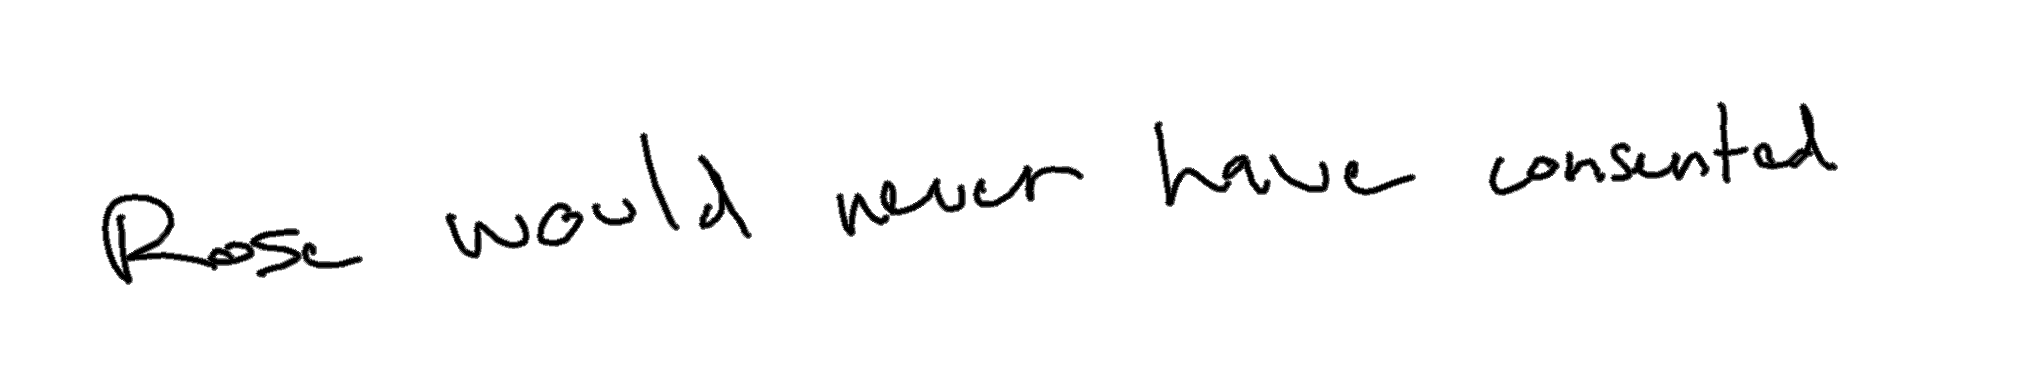 Rose would never have consented